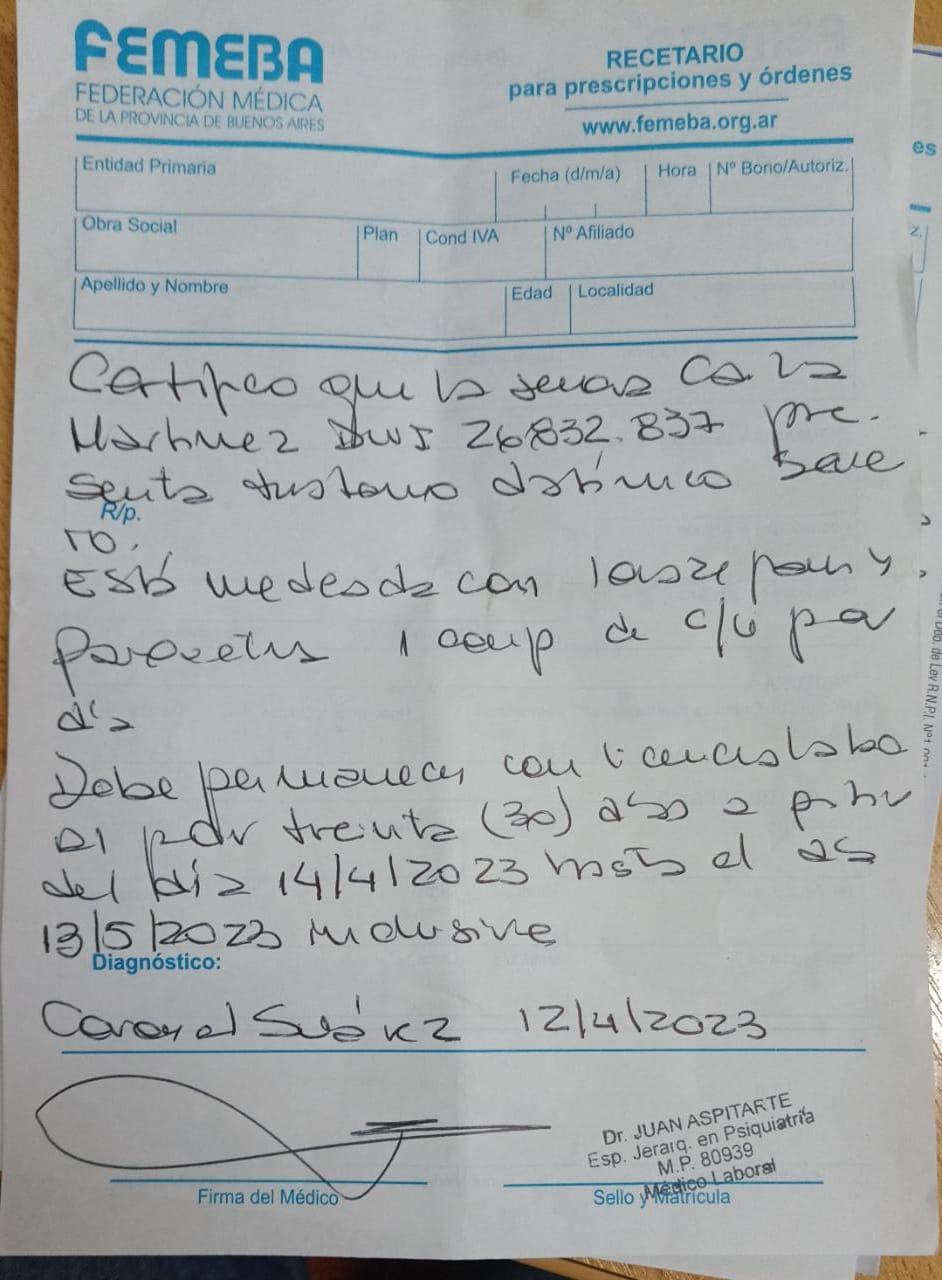 FEMEBA
FEDERACIÓN MÉDICA
DE LA PROVINCIA DE BUENOS AIRES
RECETARIO
para prescripciones y órdenes
www.femeba.org.ar
Entidad Primaria
Fecha (d/m/a)
Hora
Nº Bono/Autoriz.
Obra Social
Plan
Cond IVA
Nº Afiliado
Apellido y Nombre
Edad
Localidad
Certifico que la señora Carla
Martinez DNI 26.832.837 pre-
senta trastorno distímico seve
R/p.
ro.
Está medicada con lorazepam y
paroxetina 1 comp de c/u por
día
Debe permanecer con licencia labo
al por treinta (30) días a partir
del día 14/4/2023 hasta el día
13/5/2023 inclusive
Diagnóstico:
Coronel Suárez 12/4/2023
Dr. JUAN ASPITARTE
Esp. Jerarq. en Psiquiatría
M.P. 80939
Médico Laboral
Firma del Médico
Sello y Matrícula
es
z.